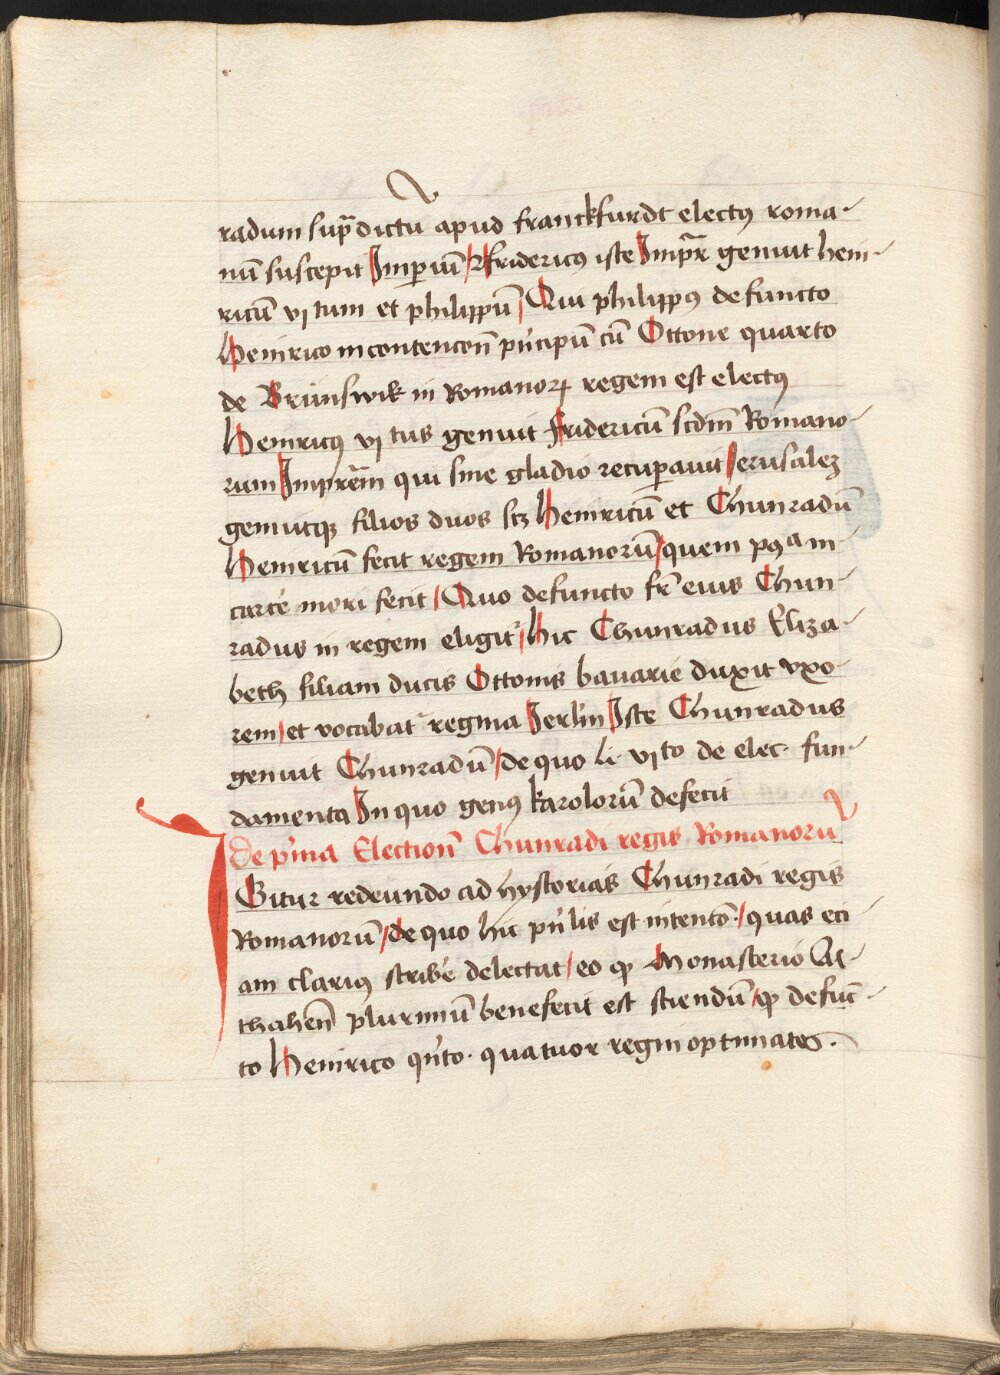 radum sup̄dictū apud franckfurdt electꝰ roma-
nū suscepit Imperiū / Fridericꝰ iste Imp̄r genuit hein-
ricū vj tum et philippū / Qui philippꝰ defuncto
Heinrico in contencōn prīcipū cū Ottone quarto
de Brunswik in Romanoꝝ regem est electꝰ
Heinricꝰ vj tus genuit fridericū scdm̄ Romano-
rum Impr̄em qui sine gladio recuperauit Jerusalez
genuitqꝫ filios duos scz Heinricū et Chunradū
Heinricū fecit regem Romanorū / quem pꝰa in
carcē mori fecit / Quo defuncto fr̄ eius Chun-
radus in regem eligit᷑ / Hic Chunradus Eliza-
beth filiam ducis Ottonis bauarie duxit vxo-
rem / et vocabat᷑ regina Jerl̄m Iste Chunradus
genuit Chunradū / de quo li vj to de elec. fun-
damenta In quo genꝰ karolorū defecit
de p̄ma Election̄ Chunradi regis Romanorū
IGitur redeundo ad hystorias Chunradi regis
Romanorū / de quo hic pn̄lis est intencō / quas eci
am clariꝰ scribē delectat / eo ꝙ Monasterio Al-
thahen̄ plurimū benefecit est sciendū / ꝙ defūc-
to Heinrico qn̄to . quatuor regni optimates .